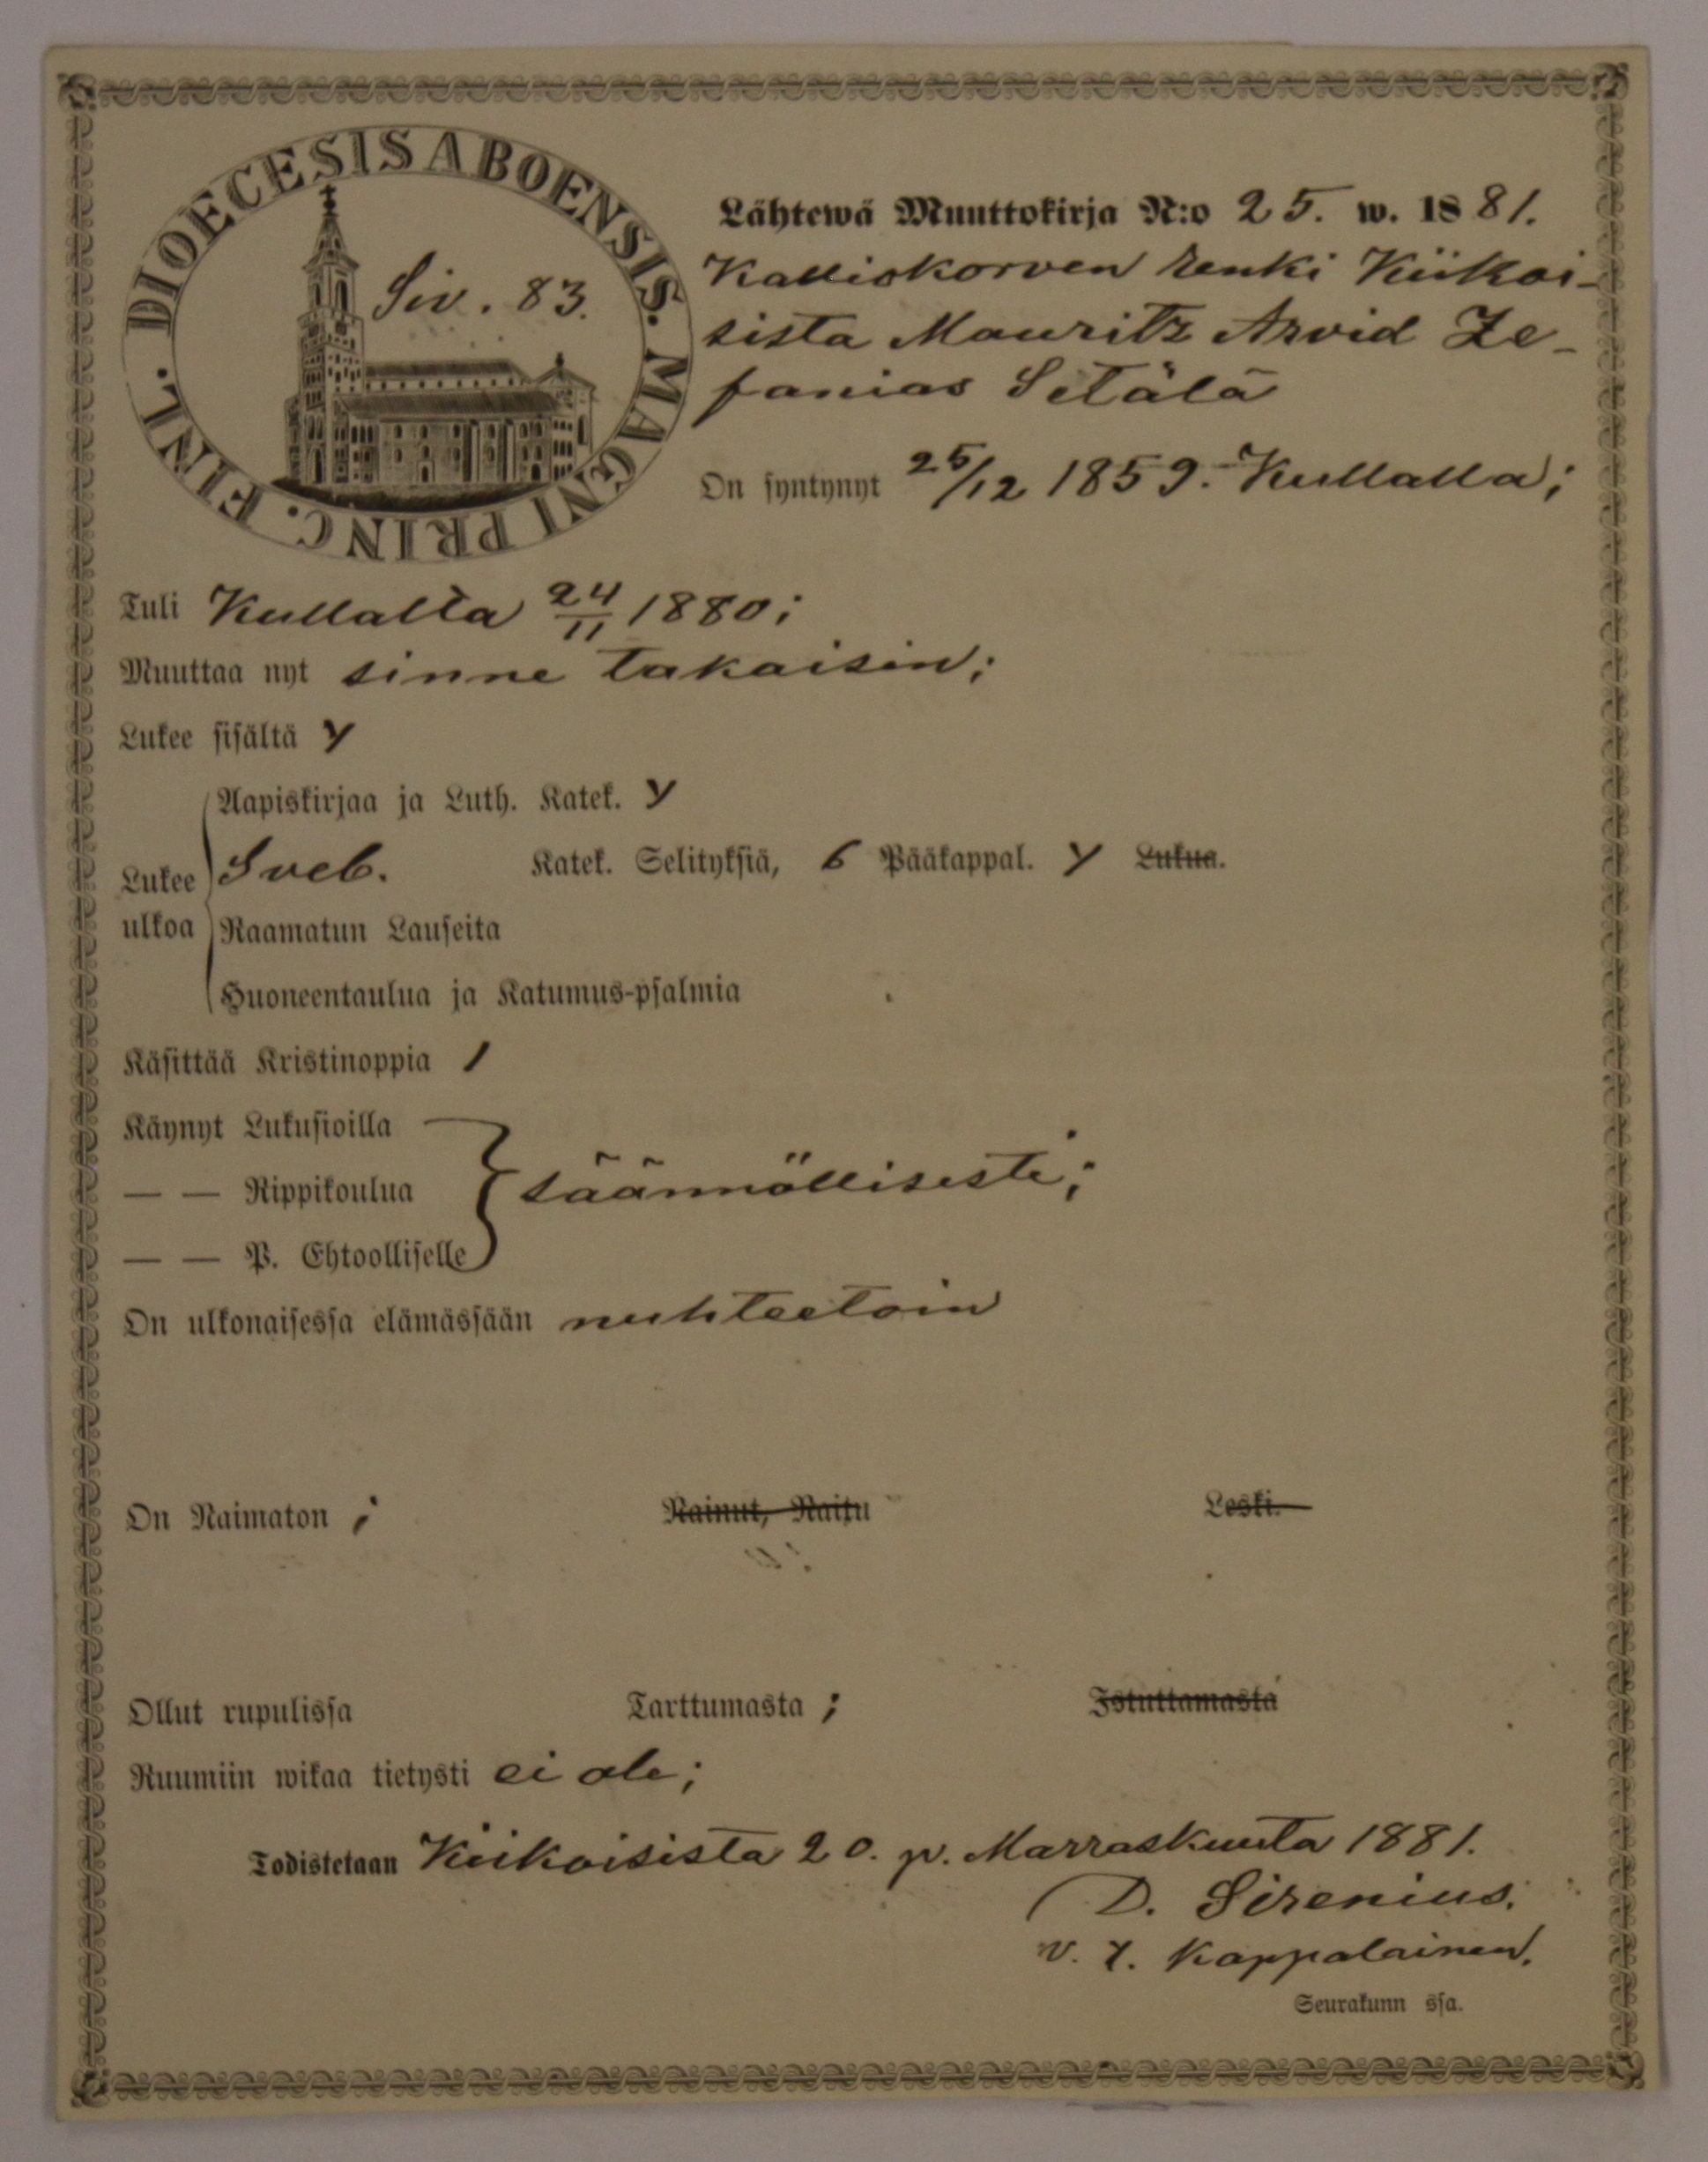 DIOECESIS ABOENSIS. MAGNI PRINC. FINL.
Siv. 83.
Lähtewä Muuttokirja N:o 25. w. 1881.
Kalliokorven renki Kiikoi-
sista Mauritz Arvid Ze-
fanias Setälä
On syntynyt 25/12 1859. Kullalla;
Tuli Kullalta 24/11 1880;
Muuttaa nyt sinne takaisin;
Lukee sisältä y
Aapiskirjaa ja Luth. Katek. y
Lukee Sveb. Katek. Selityksiä, 6 Pääkappal. y Lukua.
ulkoa Raamatun Lauseita
Huoneentaulua ja Katumus-psalmia
Käsittää Kristinoppia 1
Käynyt Lukusioilla
— — Rippikoulua säännöllisesti;
— — P. Ehtoolliselle
On ulkonaisessa elämässään nuhteetoin
On Naimaton ; Nainut, Naitu Leski.
Ollut rupulissa Tarttumasta ; Istuttamasta
Ruumiin wikaa tietysti ei ole;
Todistetaan Kiikoisista 20. p. Marraskuuta 1881.
D. Sirenius.
v. t. Kappalainen.
Seurakunn ssa.